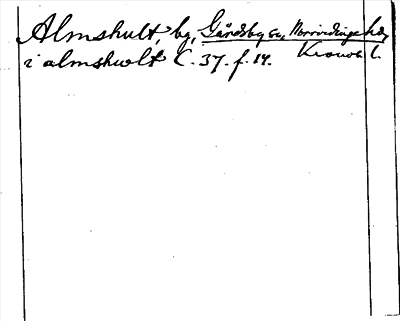 Almshult, by, Gårdsby sn, Norrvidinge hd,
i almshwlt C. 37. f. 14. Kronob. l.